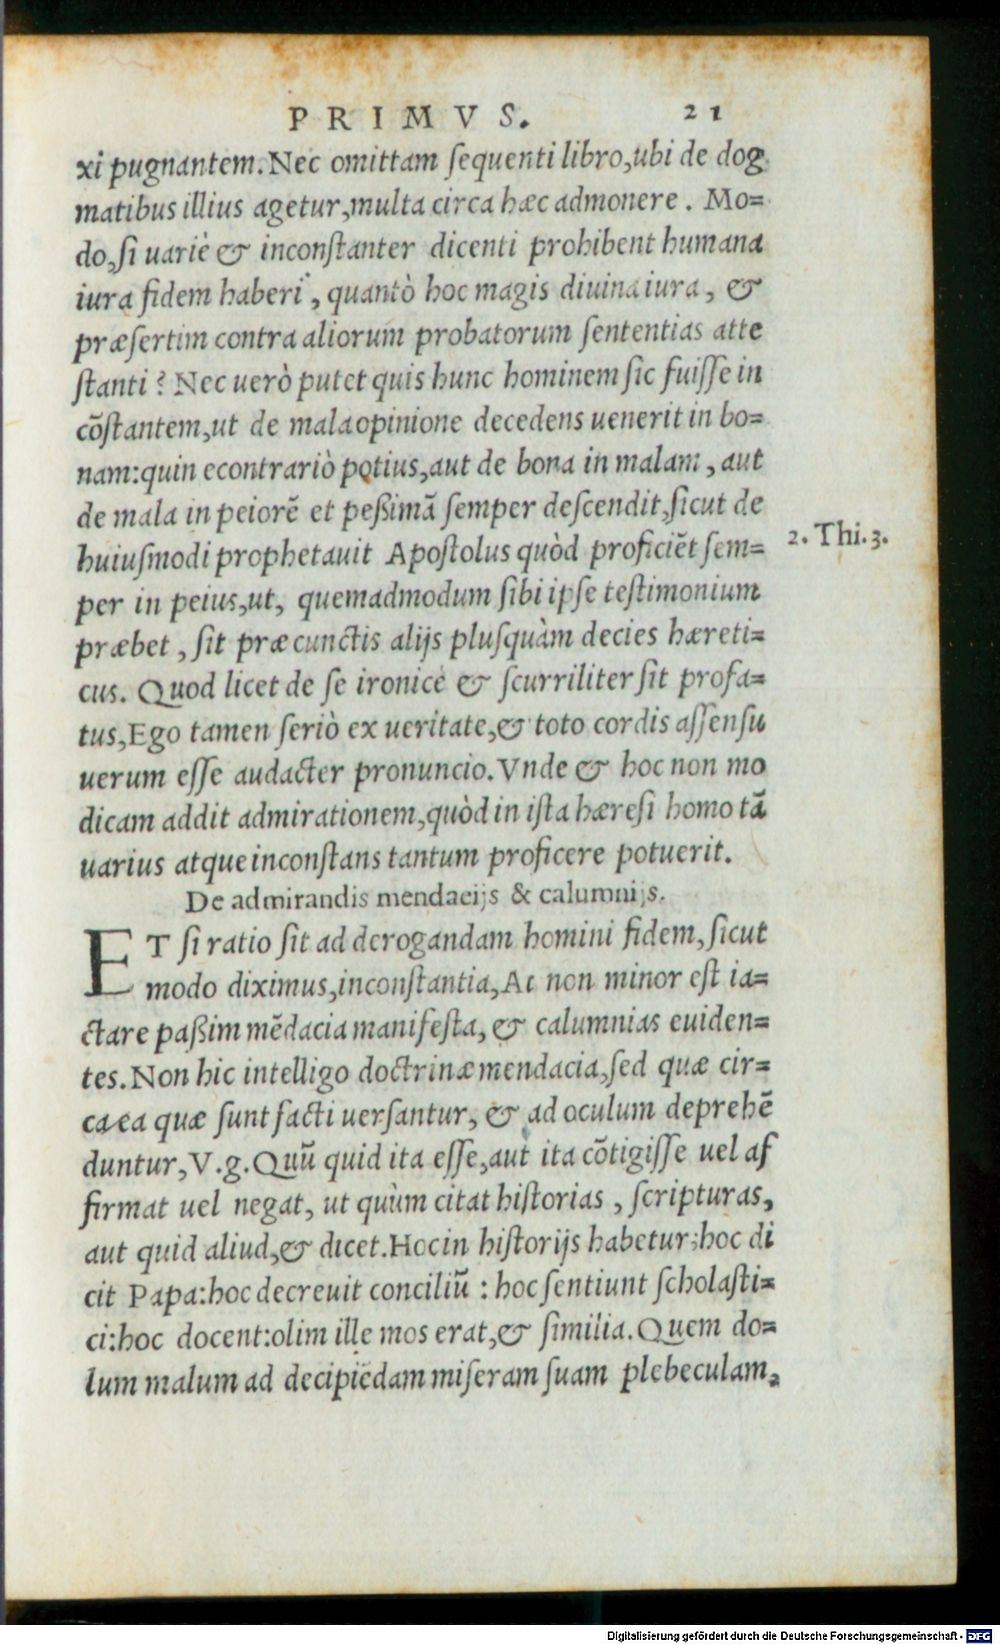 PRIMVS. 21
xi pugnantem. Nec omittam ſequenti libro, ubi de dog
matibus illius agetur, multa circa hæc admonere. Mo=
do, ſi uariè & inconſtanter dicenti prohibent humana
iura fidem haberi, quantò hoc magis diuina iura, &
præſertim contra aliorum probatorum ſententias atte
ſtanti? Nec uerò putet quis hunc hominem ſic fuiſſe in
cõſtantem, ut de mala opinione decedens uenerit in bo=
nam: quin econtrariò potius, aut de bona in malam, aut
de mala in peiorẽ et peßimã ſemper deſcendit, ſicut de
huiuſmodi prophetauit Apoſtolus quòd proficiẽt ſem=
2. Thi. 3.
per in peius, ut, quemadmodum ſibi ipſe teſtimonium
præbet, ſit præ cunctis alijs pluſquàm decies hæreti=
cus. Quod licet de ſe ironicè & ſcurriliter ſit profa=
tus, Ego tamen ſeriò ex ueritate, & toto cordis aſſenſu
uerum eſſe audacter pronuncio. Vnde & hoc non mo
dicam addit admirationem, quòd in iſta hæreſi homo tã
uarius atque inconſtans tantum proficere potuerit.
De admirandis mendacijs & calumnijs.
ET ſi ratio ſit ad derogandam homini fidem, ſicut
modo diximus, inconſtantia, At non minor eſt ia=
ctare paßim mẽdacia manifeſta, & calumnias euiden=
tes. Non hic intelligo doctrinæ mendacia, ſed quæ cir=
ca ea quæ ſunt facti uerſantur, & ad oculum deprehẽ
duntur, V.g. Quũ quid ita eſſe, aut ita cõtigiſſe uel af
firmat uel negat, ut quùm citat hiſtorias, ſcripturas,
aut quid aliud, & dicet. Hoc in hiſtorijs habetur; hoc di
cit Papa: hoc decreuit conciliũ: hoc ſentiunt ſcholaſti=
ci: hoc docent: olim ille mos erat, & ſimilia. Quem do=
lum malum ad decipiẽdam miſeram ſuam plebeculam,
Digitalisierung gefördert durch die Deutsche Forschungsgemeinschaft - DFG